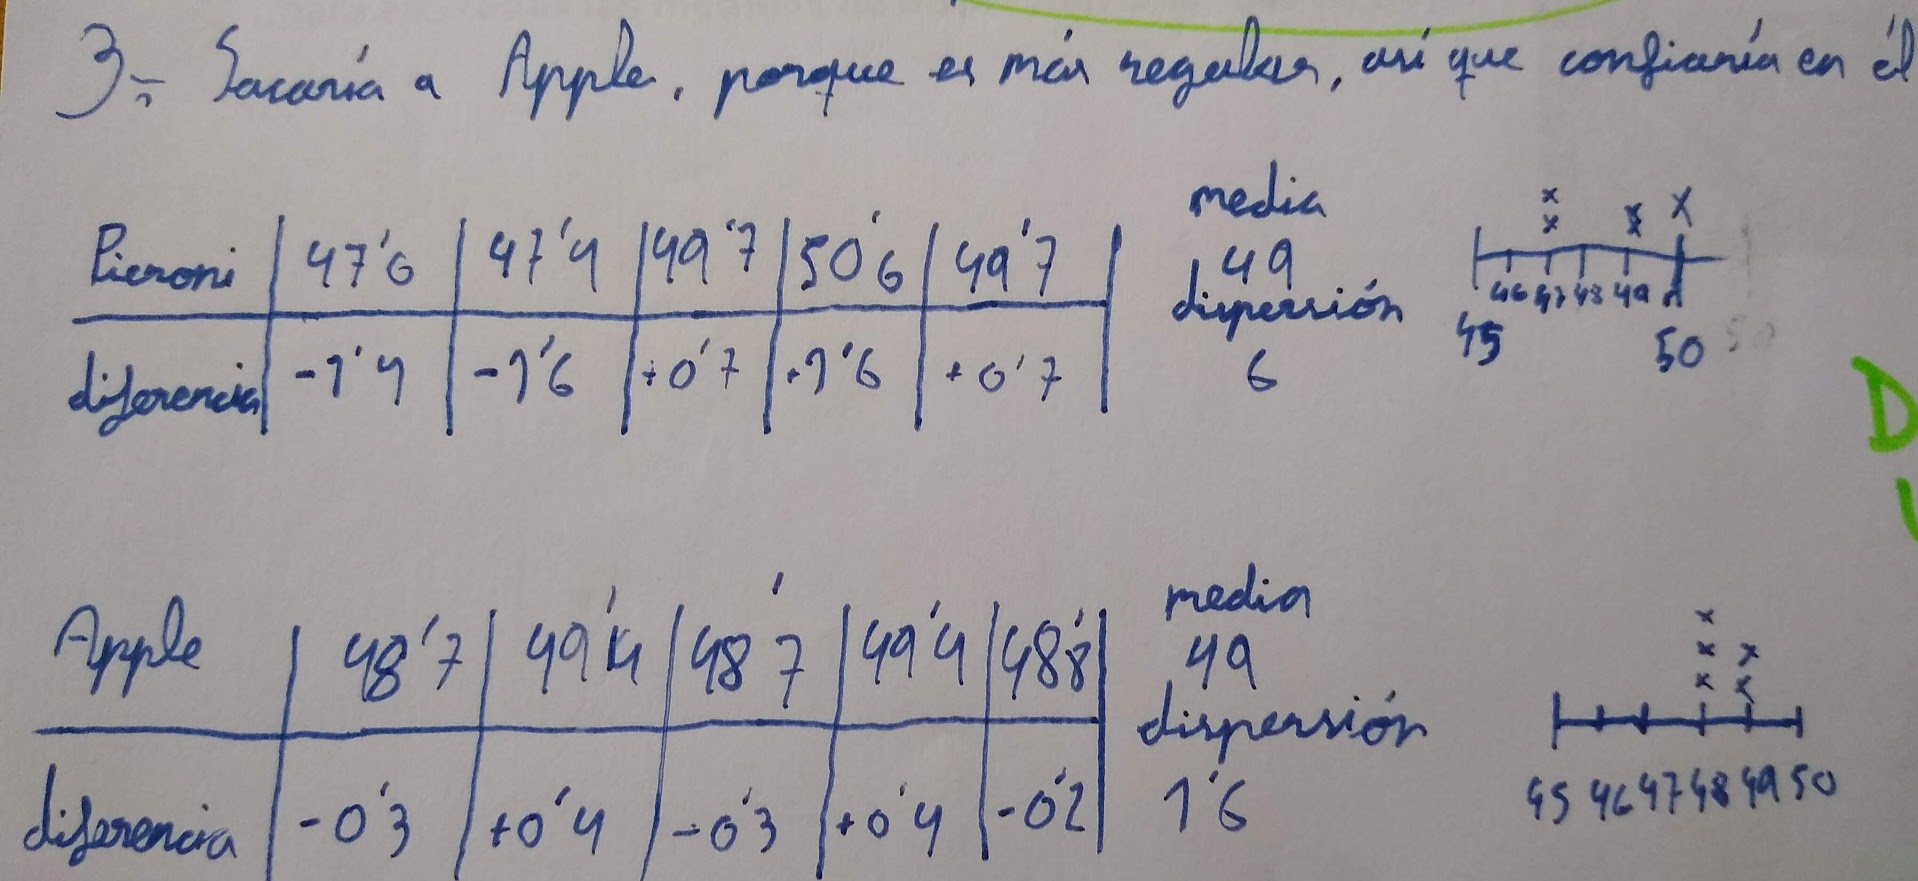 3.- Sacaría a Apple, porque es más regular, así que confiaría en él
Pieroni 47'6 47'4 49'7 50'6 49'7
diferencia -1'4 -1'6 +0'7 +1'6 +0'7
media
49
dispersión
6
45 46 47 48 49 50
Apple 48'7 49'4 48'7 49'4 48'8
diferencia -0'3 +0'4 -0'3 +0'4 -0'2
media
49
dispersión
1'6
45 46 47 48 49 50
D